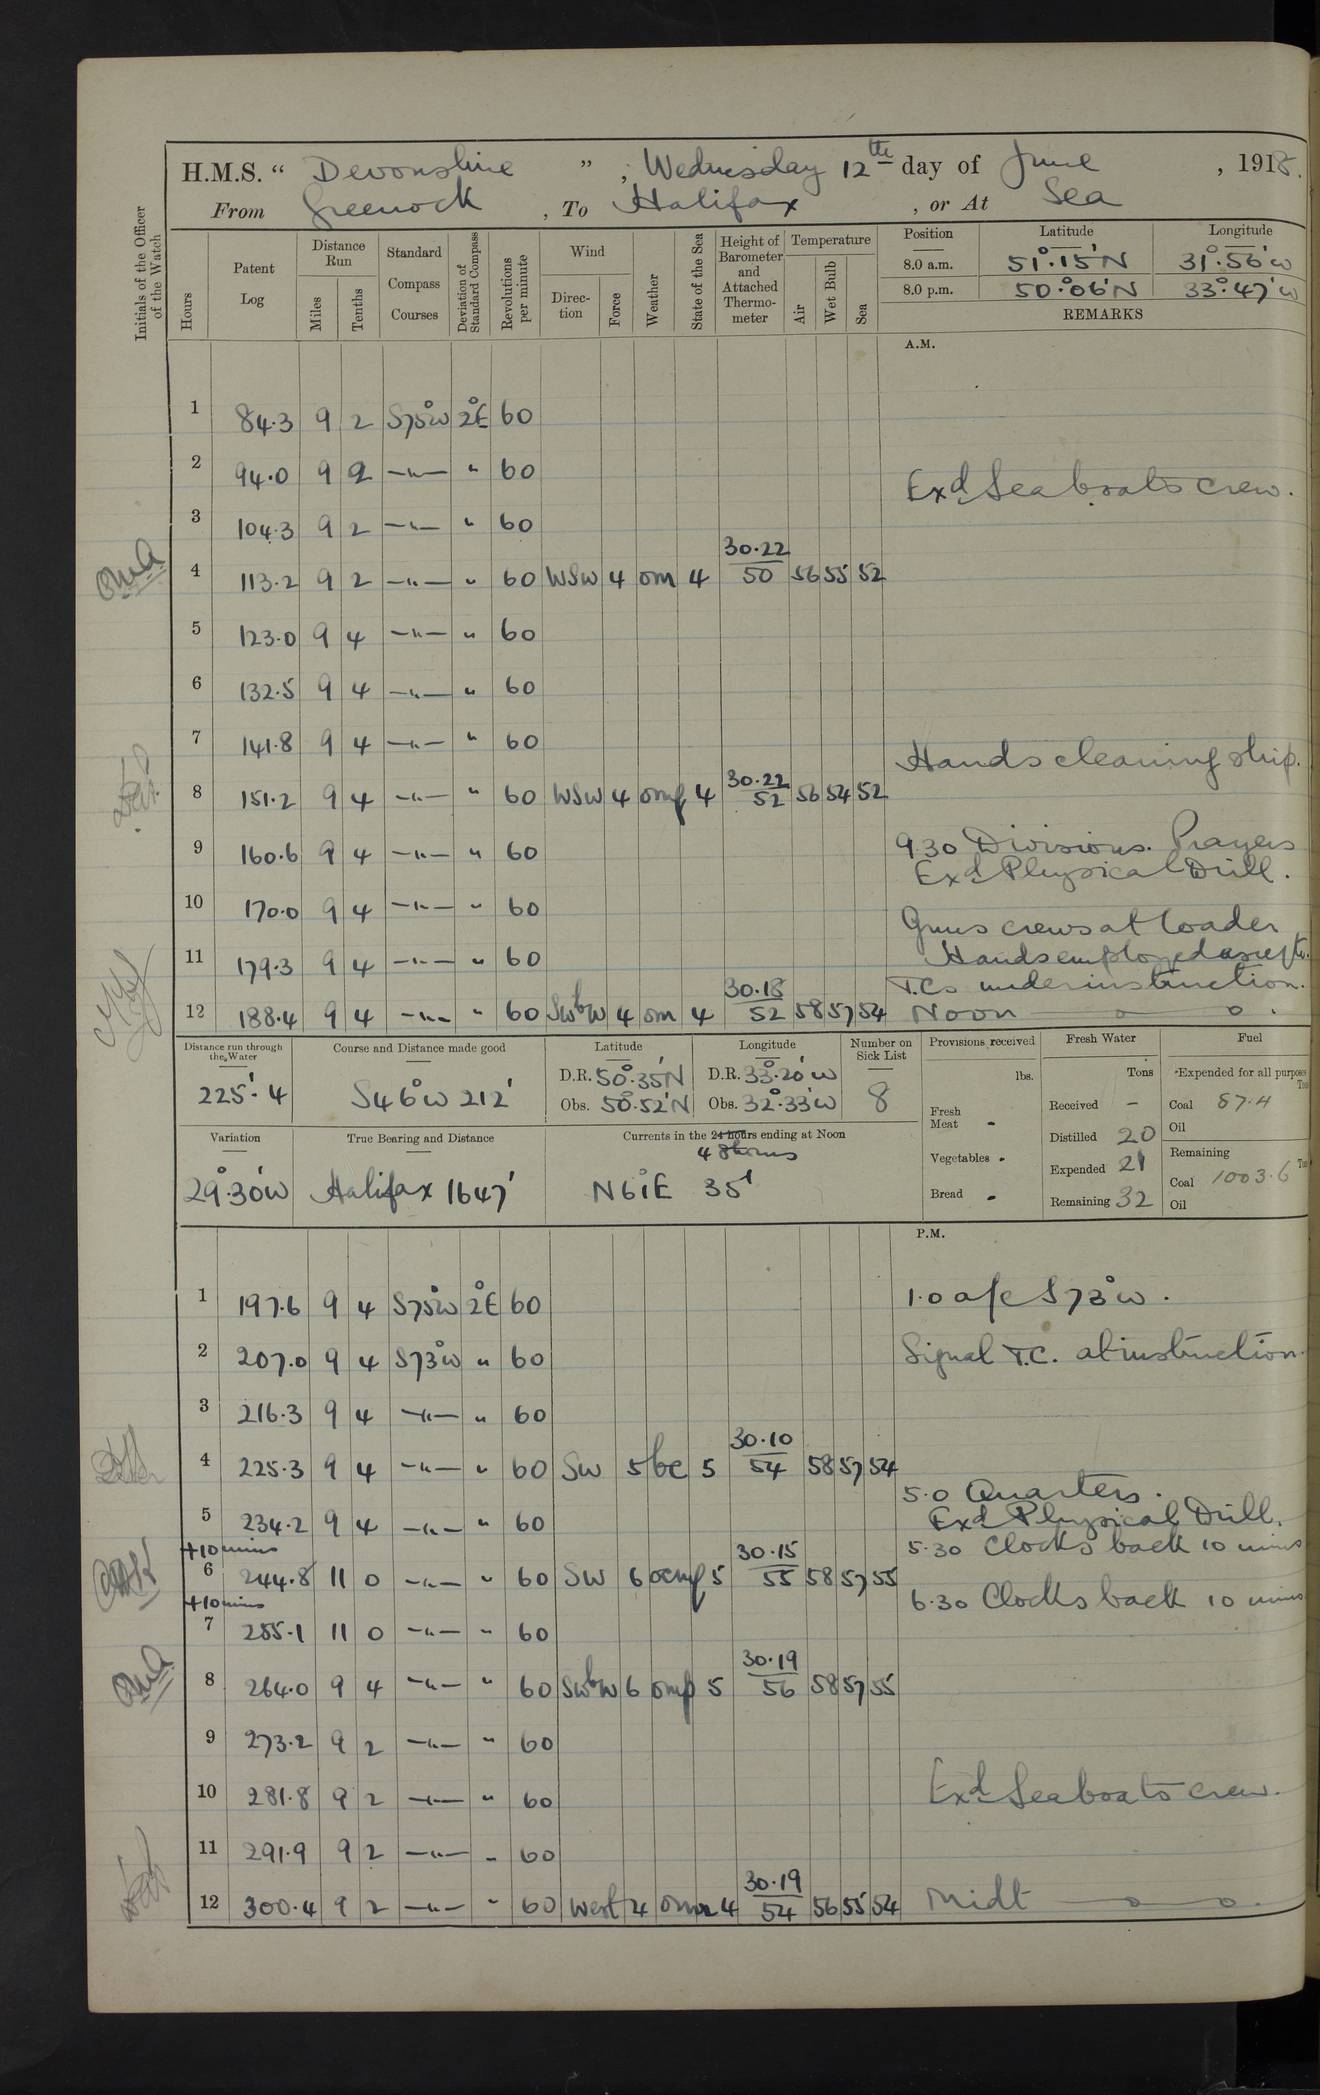 H.M.S. “ Devonshire ” , Wednesday 12th day of June , 1918.
From Greenock , To Halifax , or At Sea
Initials of the Officer of the Watch
Hours Patent Log Distance Run Miles Tenths Standard Compass Courses Deviation of Standard Compass Revolutions per minute Wind Direc-tion Force Weather State of the Sea Height of Barometer and Attached Thermo-meter Temperature Air Wet Bulb Sea Position Latitude Longitude
8.0 a.m. 51°.15'N 31°.56'W
8.0 p.m. 50°.06'N 33°.47'W
REMARKS
A.M.
1 84.3 9 2 S75°W 2°E 60
2 94.0 9 2 —"— " 60 Exd Seaboats crew.
3 104.3 9 2 —"— " 60
4 113.2 9 2 —"— " 60 WSW 4 om 4 30.22 50 56 55 52
5 123.0 9 4 —"— " 60
6 132.5 9 4 —"— " 60
7 141.8 9 4 —"— " 60 Hands cleaning ship.
8 151.2 9 4 —"— " 60 WSW 4 omf 4 30.22 52 56 54 52
9 160.6 9 4 —"— " 60 9.30 Divisions. Prayers
Exd Physical Drill.
10 170.0 9 4 —"— " 60 Guns crews at loader
11 179.3 9 4 —"— " 60 Hands employed as reqte.
T.Cs under instruction.
12 188.4 9 4 —"— " 60 SWbW 4 om 4 30.18 52 58 57 54 Noon
Distance run through the Water Course and Distance made good Latitude Longitude Number on Sick List Provisions received Fresh Water Fuel
225'.4 S46°W 212' D.R. 50°.35'N D.R. 33°.20'W 8 lbs. Tons Expended for all purposes
Obs. 50°.52'N Obs. 32°.33'W Fresh Meat - Received - Coal 87.4
Oil
Variation True Bearing and Distance Currents in the 24 hours ending at Noon Distilled 20
48 hours Vegetables - Expended 21 Remaining
29°.30'W Halifax 1647' N61°E 35' Bread - Remaining 32 Coal 1003.6
Oil
P.M.
1 197.6 9 4 S75°W 2°E 60 1.0 a/c S73°W.
2 207.0 9 4 S73°W " 60 Signal T.C. at instruction.
3 216.3 9 4 —"— " 60
4 225.3 9 4 —"— " 60 SW 5 bc 5 30.10 54 58 57 54
5.0 Quarters.
5 234.2 9 4 —"— " 60 Exd Physical Drill.
+10 mins 5.30 Clocks back 10 mins
6 244.8 11 0 —"— " 60 SW 6 ocmf 5 30.15 55 58 57 55
+10 mins 6.30 Clocks back 10 mins
7 255.1 11 0 —"— " 60
8 264.0 9 4 —"— " 60 SWbW 6 omp 5 30.19 56 58 57 55
9 273.2 9 2 —"— " 60
10 281.8 9 2 —"— " 60 Exd Seaboats crew.
11 291.9 9 2 —"— " 60
12 300.4 9 2 —"— " 60 West 4 4 30.19 54 56 55 54 Midt